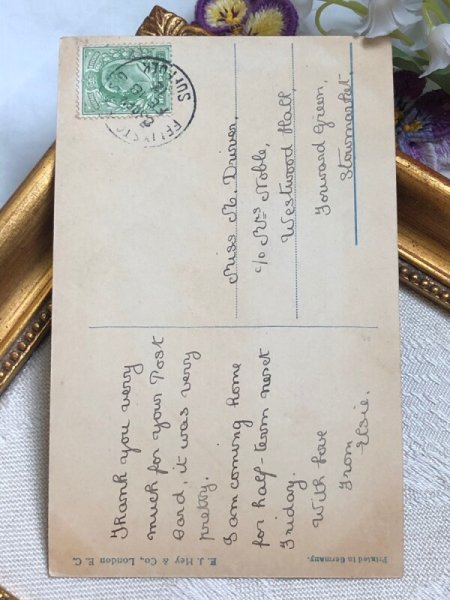 Thank you very
much for your Post
Card, it was very
pretty.
I am coming home
for half-term next
Friday.
With love
From
Elsie.
Miss M. Driver,
c/o Mrs Noble,
Westwood Hall,
Forward Green,
Stowmarket.
E. J. Hey & Co., London E. C.
Printed in Germany.